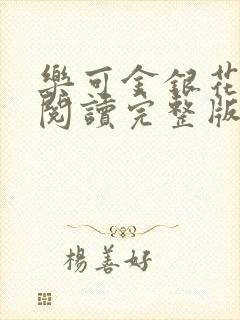 樂可金銀花
閱讀完整版
楊善好